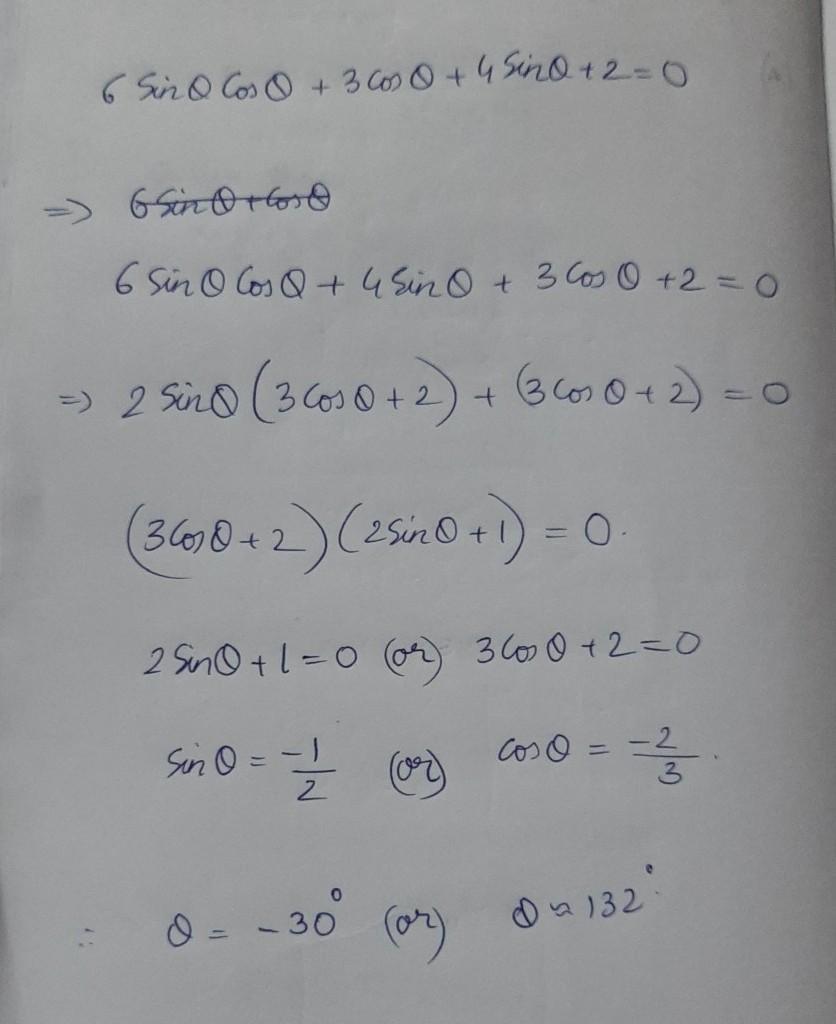 6 Sin θ Cos θ + 3 Cos θ + 4 Sin θ + 2 = 0
=> 6 Sin θ + Cos θ
6 Sin θ Cos θ + 4 Sin θ + 3 Cos θ + 2 = 0
=> 2 Sin θ (3 Cos θ + 2) + (3 Cos θ + 2) = 0
(3 Cos θ + 2) (2 Sin θ + 1) = 0.
2 Sin θ + 1 = 0 (or) 3 Cos θ + 2 = 0
Sin θ = -1/2 (or) Cos θ = -2/3.
∴ θ = -30° (or) θ ≈ 132°